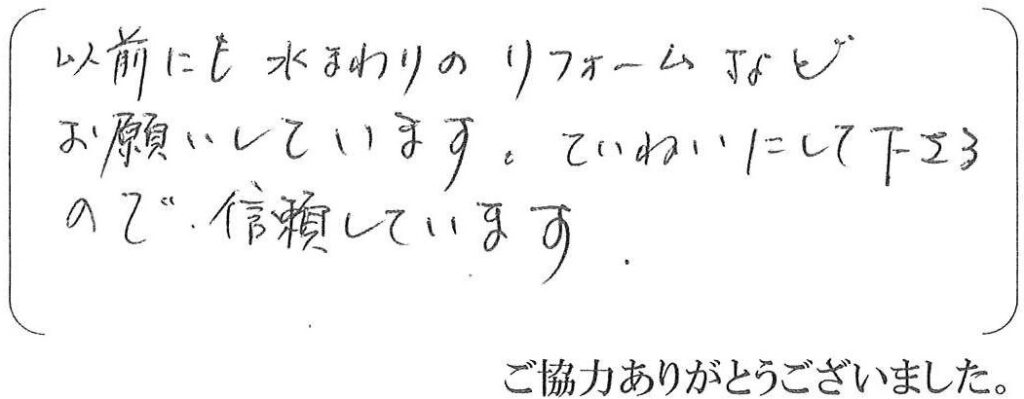 以前にも水まわりのリフォームなど
お願いしています。ていねいにして下さる
ので、信頼しています.
ご協力ありがとうございました。